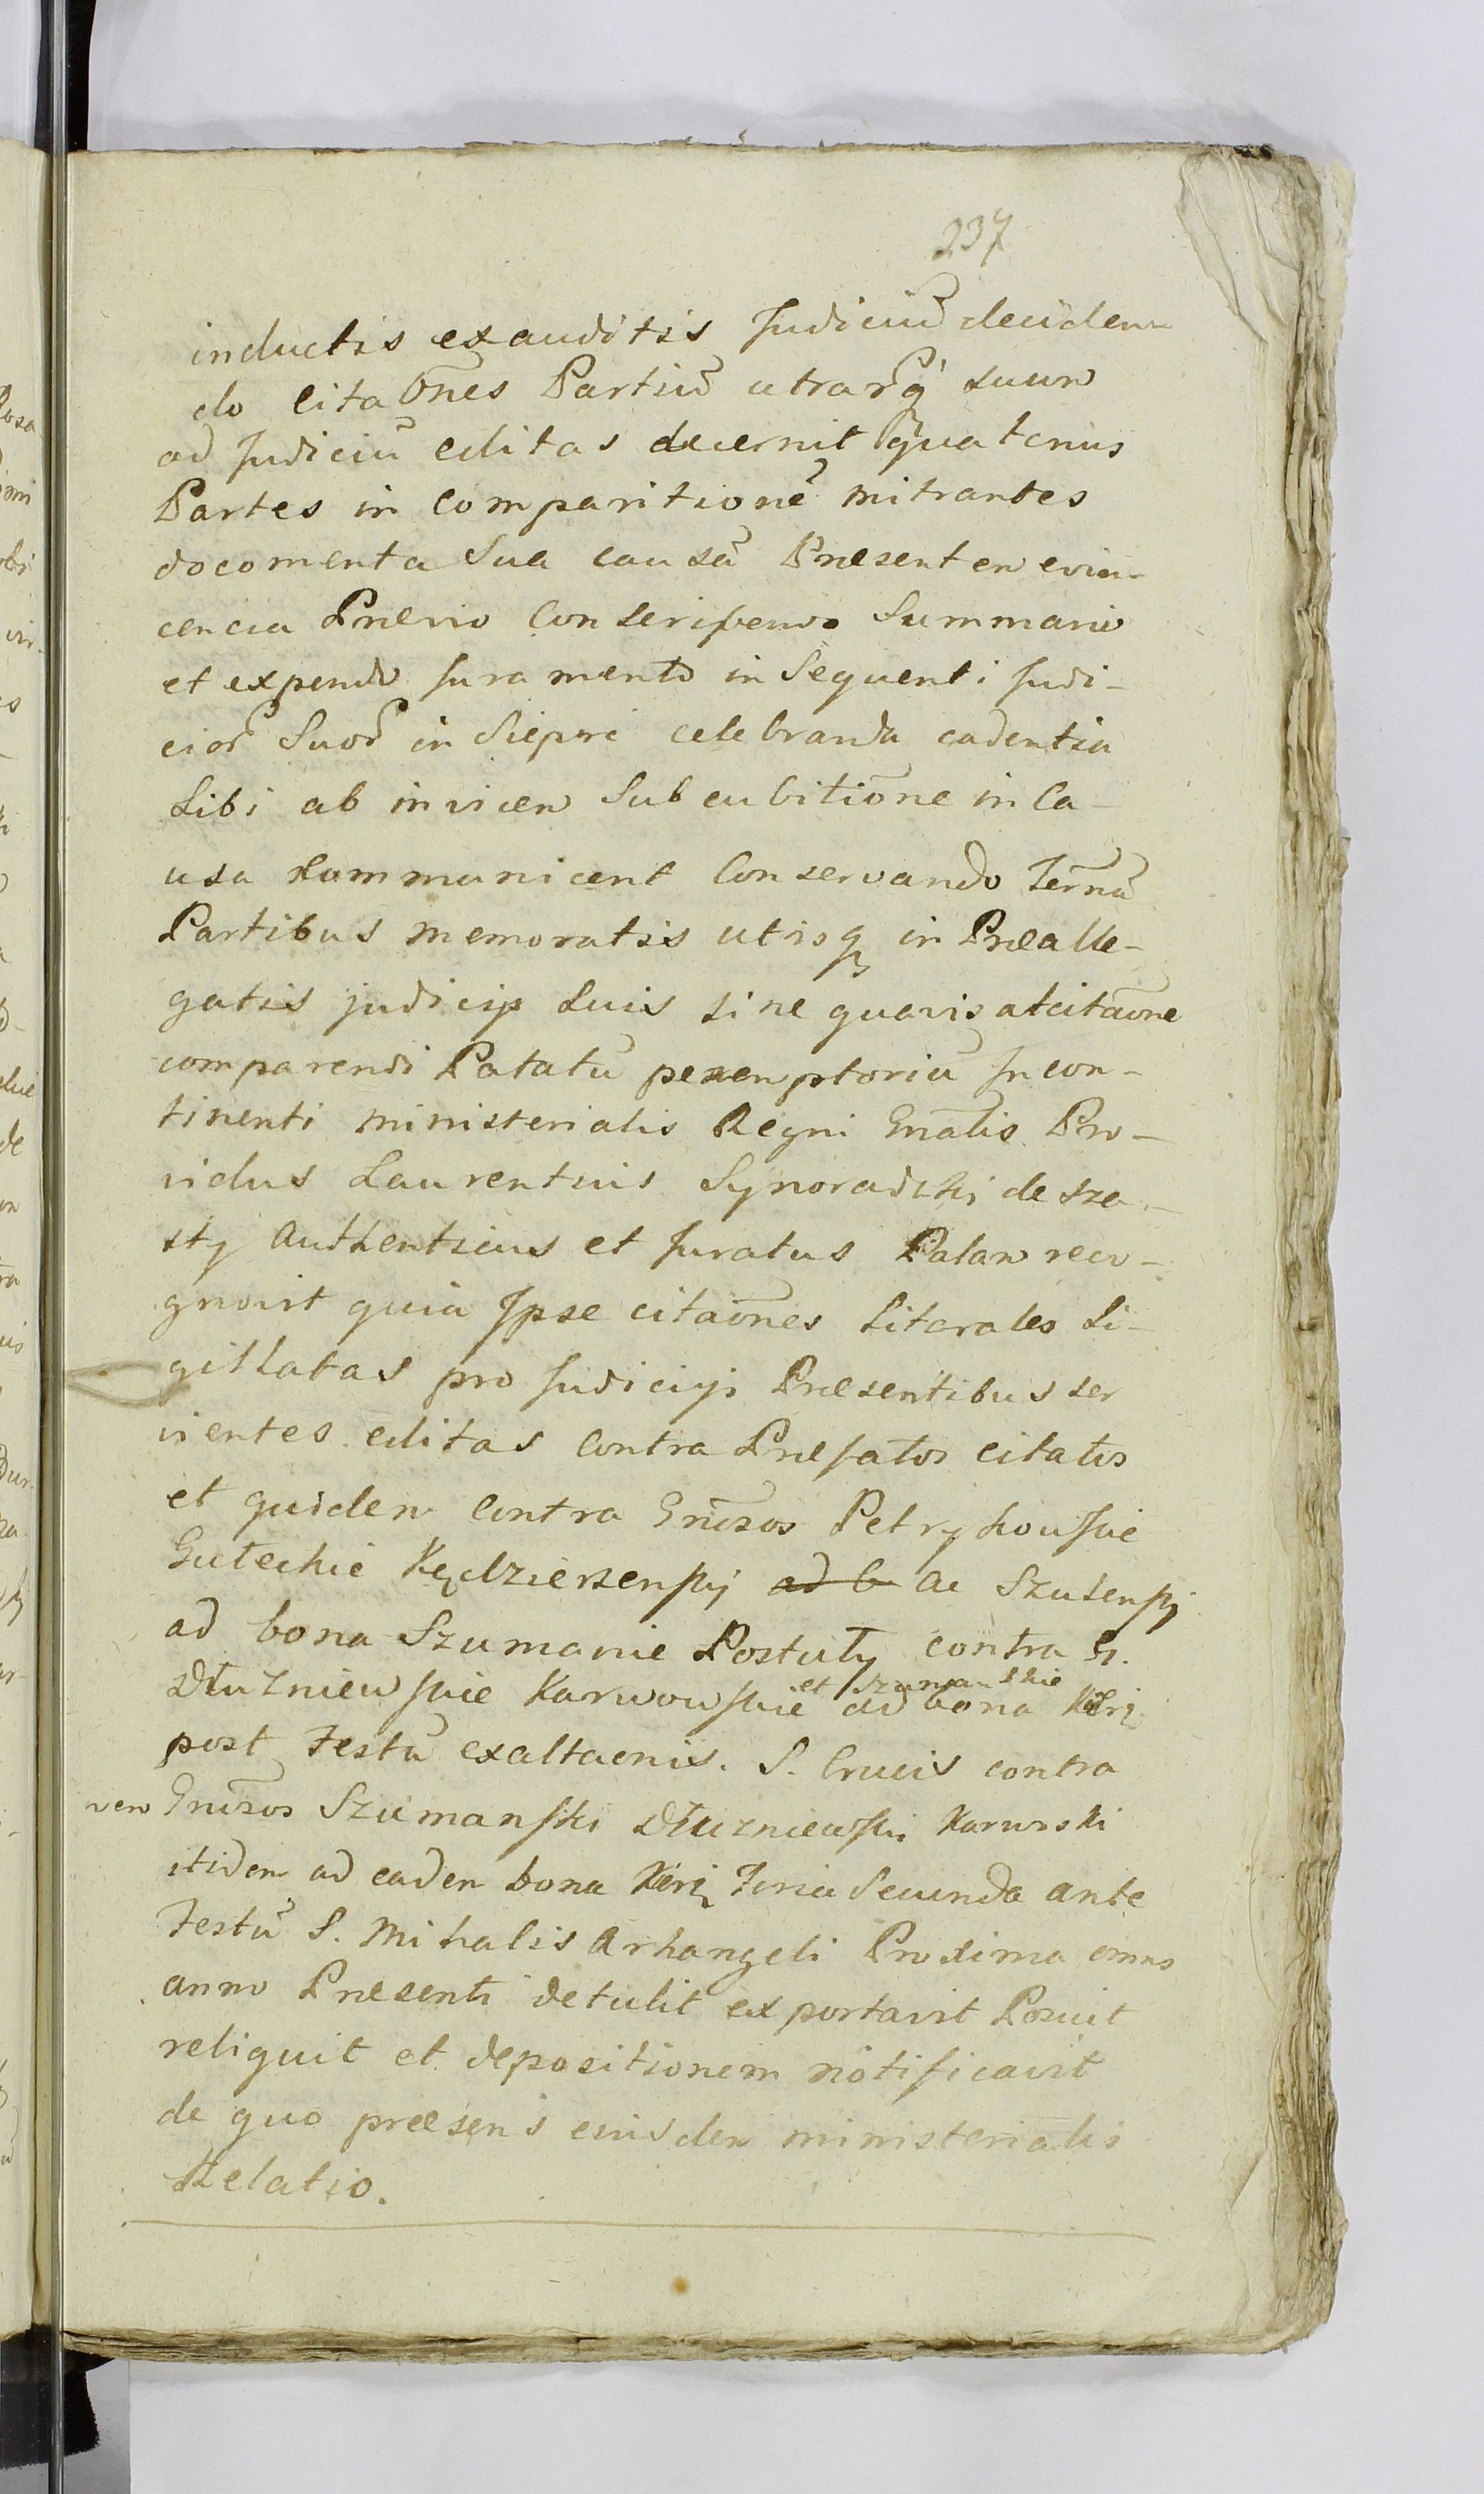 237
inductis exauditis Judiciũ deciden-
do Citaõnes Partiũ utrarq̃ suum
ad Judiciũ editas decernit quatenus
Partes in Comparitionẽ mitrantes
documenta Sua causã Præsentem evin-
cencia Prævio Conscripendo Summario
et expendo Juramento in Sequenti Judi-
cior Suor in Siepre celebranda cadentia
Sibi ab invicem Subcubitiõne in Ca-
usa kommunicent Conservando Terñu
Partibus memoratis utisq in Prealle-
gatis judicijs Suis sine quavis atcitaõne
comparendi Patatũ peremptoriũ Incon-
tinenti ministerialis Regni Gñalis Pro-
vidus Laurentius Synoradzki de Sza-
sty Authenticus et Juratus Palam reco-
gnovit quia Ipse citaõnes Literales Si-
gillatas pro Judicijs Præsentibus ser
vientes editas Contra Præfatos Citatos
et quidem Contra Gñosos Petrykowskie
Gutechie Kędziersenscij ad b ac Szulenscij
ad bona Szumanie Postuły contra G.
Dłuzniewskie Karwowskie et Szumanskie ad bona Kierz
post Festũ exaltaõnis. S. Crucis contra
vero Gñosos Szumanski Dłuzniewski Karwoski
itidem ad eadem bona Kierz Feria Secunda ante
Festũ S. Mihalis Arhangeli Proxima omnes
anno Præsenti detulit exportavit Posuit
reliquit et depositionem notificavit
de quo præsens eiusdem ministerialis
Relatio.